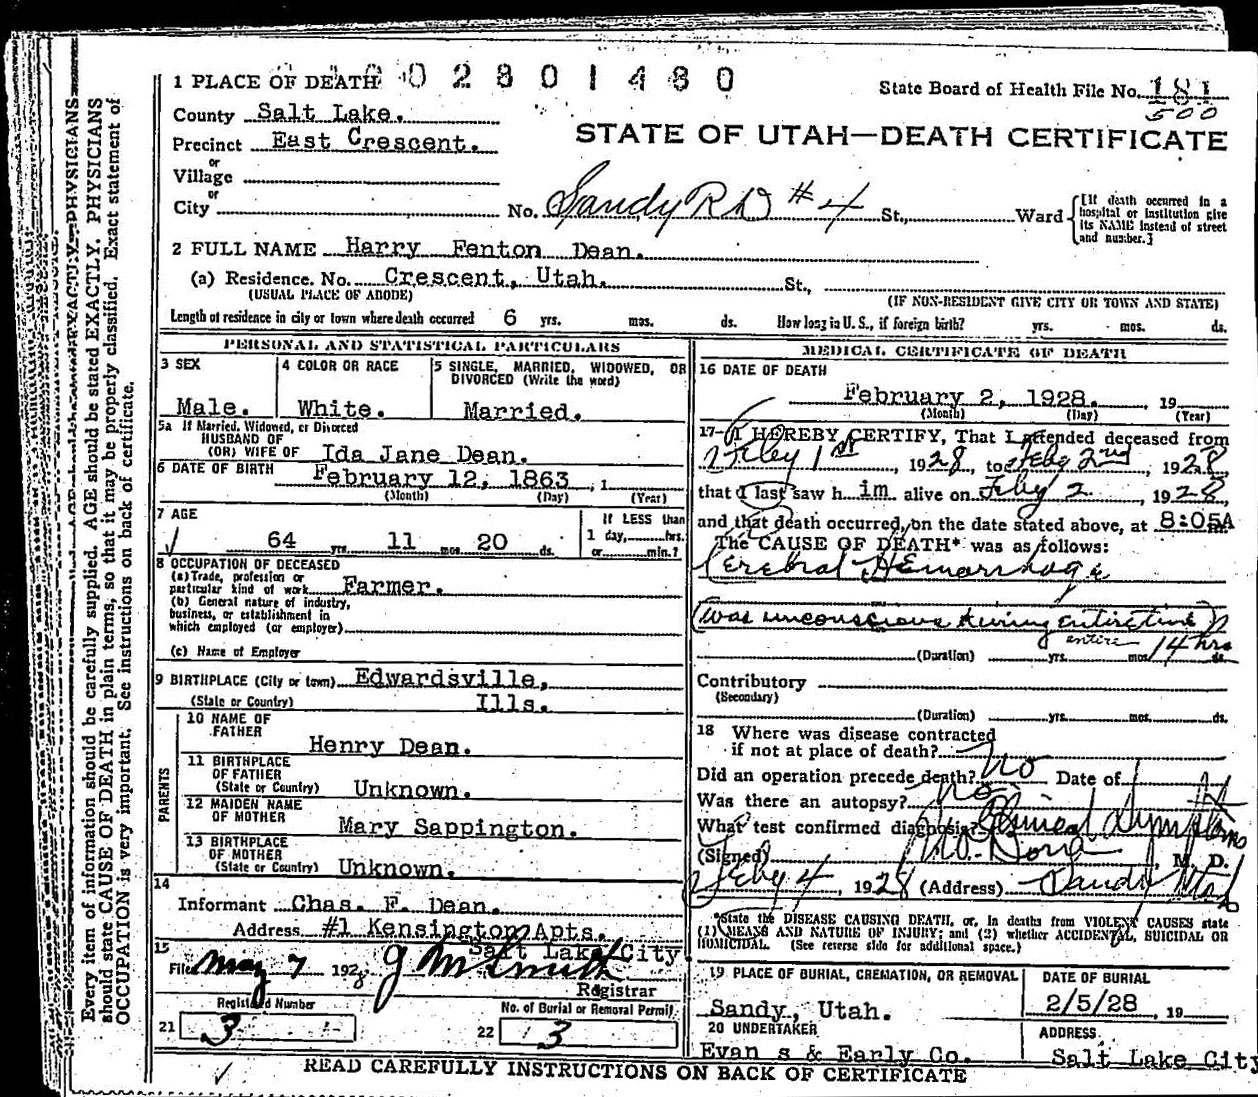 1 PLACE OF DEATH
0 2 8 0 1 4 8 0
State Board of Health File No. 181
500
County Salt Lake.
STATE OF UTAH—DEATH CERTIFICATE
Precinct East Crescent.
or
Village
or
City No. Sandy R D #4 St., Ward
[If death occurred in a hospital or institution give its NAME instead of street and number.]
2 FULL NAME Harry Fenton Dean.
(a) Residence. No. Crescent, Utah. St.,
(USUAL PLACE OF ABODE) (IF NON-RESIDENT GIVE CITY OR TOWN AND STATE)
Length of residence in city or town where death occurred 6 yrs. mos. ds. How long in U. S., if foreign birth? yrs. mos. ds.
PERSONAL AND STATISTICAL PARTICULARS
3 SEX
Male.
4 COLOR OR RACE
White.
5 SINGLE, MARRIED, WIDOWED, OR
DIVORCED (Write the word)
Married.
5a If Married, Widowed, or Divorced
HUSBAND OF
(OR) WIFE OF Ida Jane Dean.
6 DATE OF BIRTH February 12, 1863 , 1
(Month) (Day) (Year)
7 AGE
64 yrs. 11 mos. 20 ds.
If LESS than
1 day, hrs.
or min.?
8 OCCUPATION OF DECEASED
(a) Trade, profession or
particular kind of work Farmer.
(b) General nature of industry,
business, or establishment in
which employed (or employer)
(c) Name of Employer
9 BIRTHPLACE (City or town) Edwardsville,
(State or Country) Ills.
PARENTS
10 NAME OF
FATHER
Henry Dean.
11 BIRTHPLACE
OF FATHER
(State or Country) Unknown.
12 MAIDEN NAME
OF MOTHER
Mary Sappington.
13 BIRTHPLACE
OF MOTHER
(State or Country) Unknown.
14
Informant Chas. F. Dean.
Address #1 Kensington Apts.
Salt Lake City
15
Filed May 7 1928
Registrar
Registered Number
21 3
No. of Burial or Removal Permit
22 3
MEDICAL CERTIFICATE OF DEATH
16 DATE OF DEATH
February 2, 1928. , 19
(Month) (Day) (Year)
17— I HEREBY CERTIFY, That I attended deceased from
Feby 1st, 1928, to Feby 2nd, 1928
that I last saw him alive on Feby 2, 1928
and that death occurred, on the date stated above, at 8:05A m.
The CAUSE OF DEATH* was as follows:
Cerebral Hemorrhage
(Was unconscious during entire time)
entire
(Duration) yrs. mos. 14 hrs ds.
Contributory
(Secondary)
(Duration) yrs. mos. ds.
18 Where was disease contracted
if not at place of death?
Did an operation precede death? No Date of
Was there an autopsy? No
What test confirmed diagnosis? Clinical Symptoms
(Signed) , M. D.
Feby 4, 1928 (Address) Sandy Utah
*State the DISEASE CAUSING DEATH, or, in deaths from VIOLENT CAUSES state
(1) MEANS AND NATURE OF INJURY; and (2) whether ACCIDENTAL, SUICIDAL OR
HOMICIDAL. (See reverse side for additional space.)
19 PLACE OF BURIAL, CREMATION, OR REMOVAL
Sandy, Utah.
DATE OF BURIAL
2/5/28 , 19
20 UNDERTAKER
Evan s & Early Co.
ADDRESS
Salt Lake City
READ CAREFULLY INSTRUCTIONS ON BACK OF CERTIFICATE
Every item of information should be carefully supplied. AGE should be stated EXACTLY. PHYSICIANS
should state CAUSE OF DEATH in plain terms, so that it may be properly classified. Exact statement of
OCCUPATION is very important. See instructions on back of certificate.